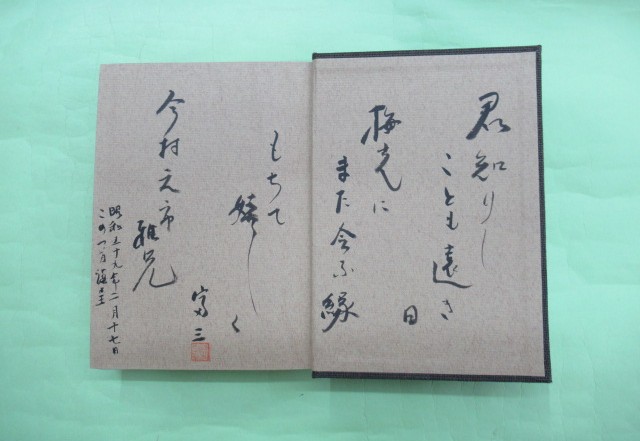 君知りし
ことも遠き
日
梅老に
また会ふ縁
もちて
嬉しく
富三
今村元市
雅兄
昭和五十九年二月十七日
この一句謹呈